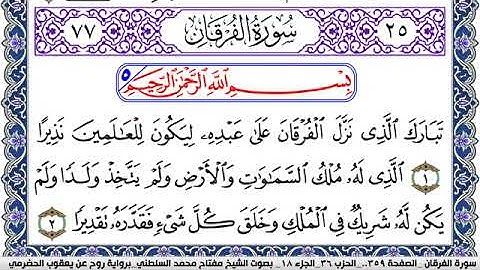 ٢٥ سُورَةُ الْفُرْقَانِ ٧٧
بِسْمِ اللَّهِ الرَّحْمَٰنِ الرَّحِيمِ ٥
تَبَارَكَ الَّذِي نَزَّلَ الْفُرْقَانَ عَلَىٰ عَبْدِهِۦ لِيَكُونَ لِلْعَالَمِينَ نَذِيرًا
١ الَّذِي لَهُۥ مُلْكُ السَّمَاوَاتِ وَالْأَرْضِ وَلَمْ يَتَّخِذْ وَلَدًا وَلَمْ
يَكُن لَّهُۥ شَرِيكٌ فِي الْمُلْكِ وَخَلَقَ كُلَّ شَيْءٍ فَقَدَّرَهُۥ تَقْدِيرًا ٢
سورة الفرقان _ الصفحة ٣٥٩_ الحزب ٣٦_ الجزء ١٨_ بصوت الشيخ مفتاح محمد السلطني_ برواية روح عن يعقوب الحضرمي